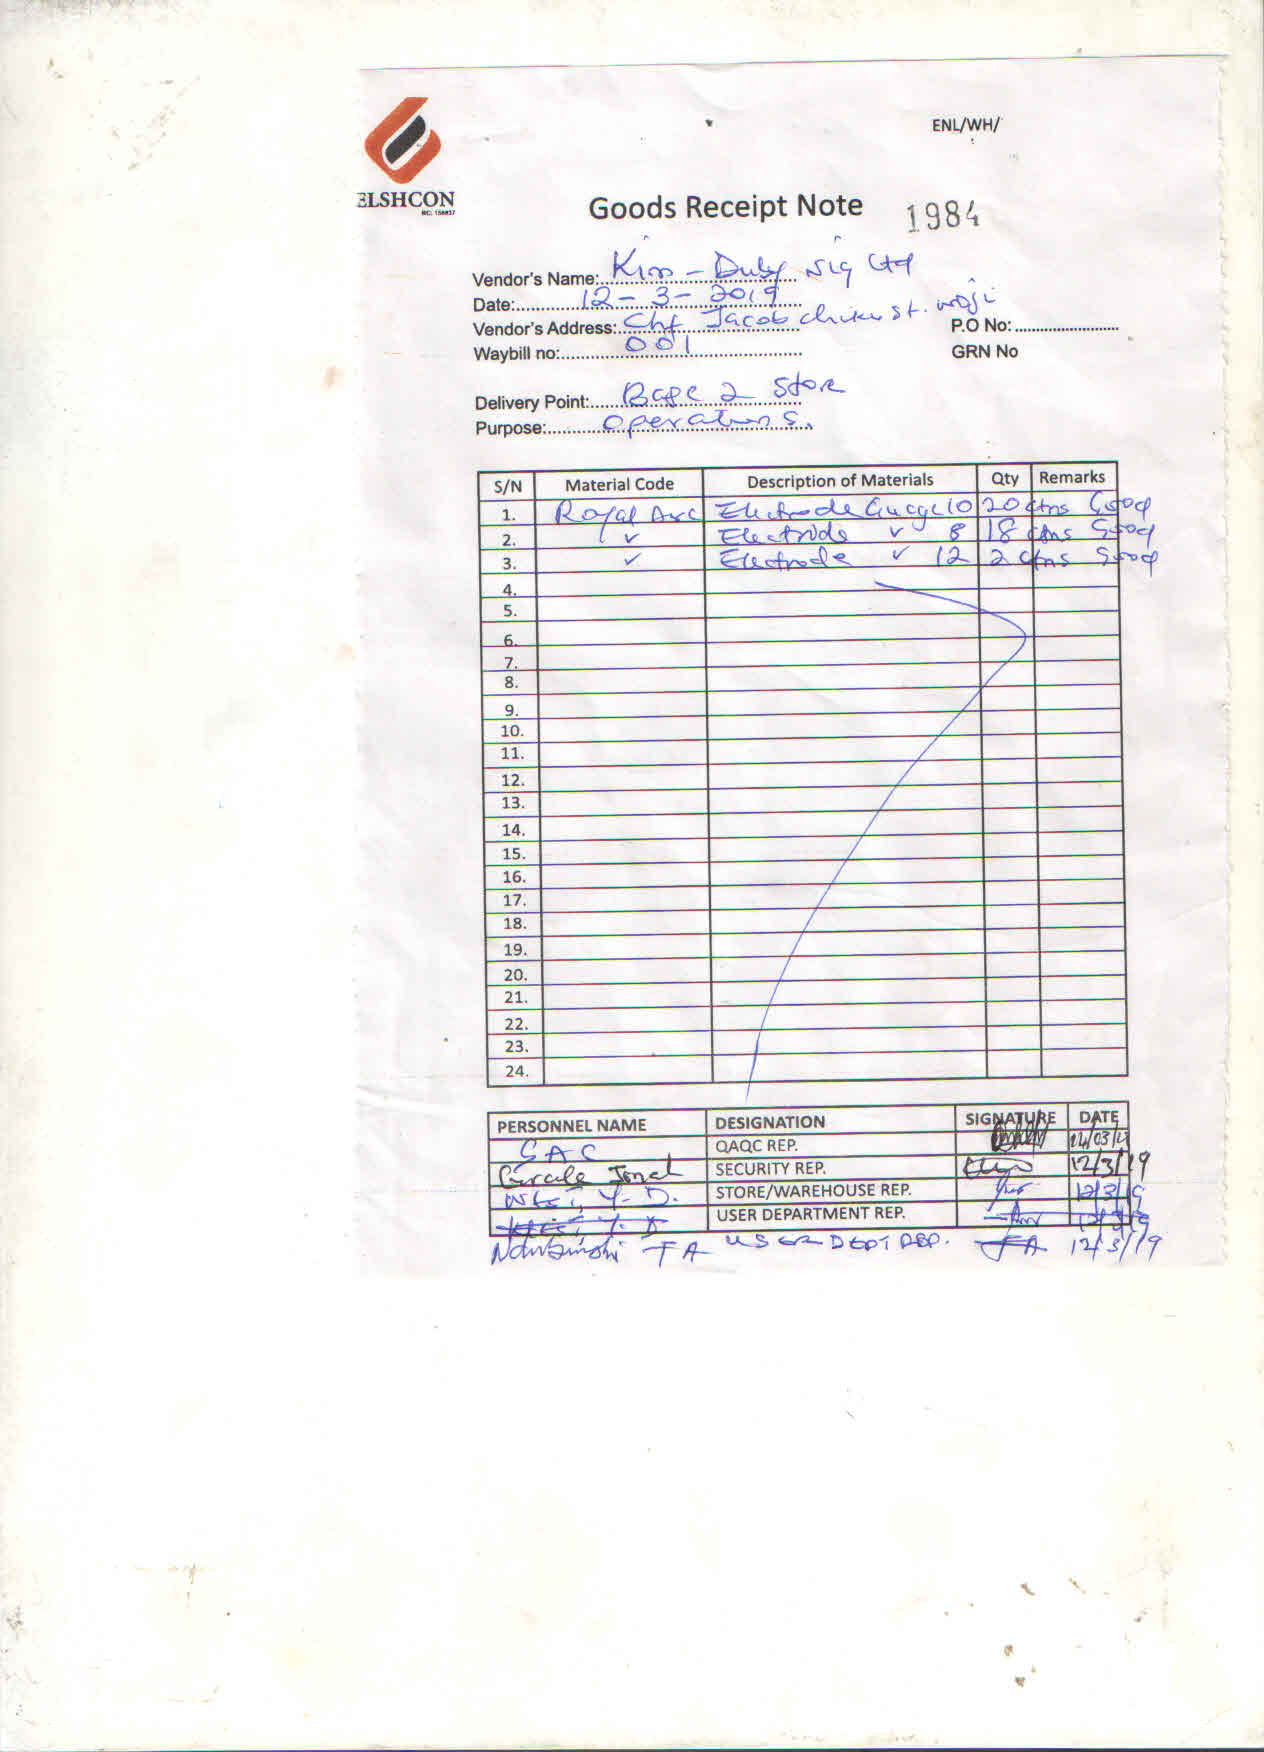 ENL/WH/
ELSHCON
RC: 156837
Goods Receipt Note 1984
Vendor's Name: Kim - Duby Nig Ltd
Date: 12 - 3 - 2019
Vendor's Address: Chf Jacob st. woji P.O No:
Waybill no: 001 GRN No
Delivery Point: Base 2 Store
Purpose: Operations.
S/N Material Code Description of Materials Qty Remarks
1. Royal Arc Electrode Guage 10 20 ctns Good
2. ✓ Electrode ✓ 8 18 ctns Good
3. ✓ Electrode ✓ 12 2 ctns Good
4.
5.
6.
7.
8.
9.
10.
11.
12.
13.
14.
15.
16.
17.
18.
19.
20.
21.
22.
23.
24.
PERSONNEL NAME DESIGNATION SIGNATURE DATE
QAQC REP.
SECURITY REP. 12/3/19
Y. D. STORE/WAREHOUSE REP. 12/3/19
Y. D USER DEPARTMENT REP. 12/3/19
USER DEPT REP. 12/3/19